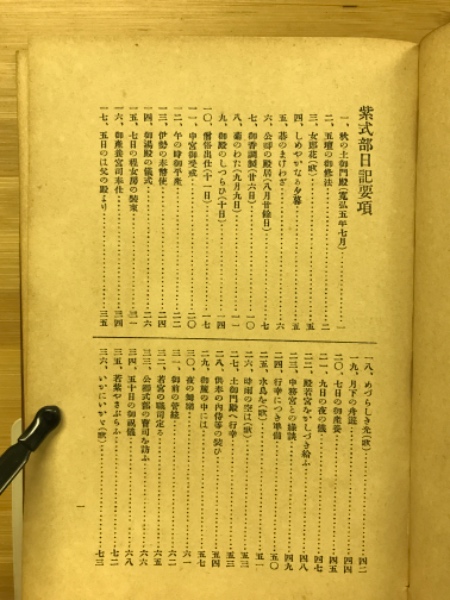 紫式部日記要項
一、秋の土御門殿(寛弘五年七月)…………一
二、五壇の御修法…………二
三、女郎花(歌)…………五
四、しめやかなる夕暮…………五
五、碁のまけわざ…………六
六、公卿の殿居(八月廿餘日)…………七
七、御香調製(廿六日)…………一〇
八、菊のわた(九月九日)…………一一
九、御殿のしつらひ(十日)…………一四
一〇、僧俗出仕(十一日)…………一七
一一、中宮御受戒…………二〇
一二、午の時御平産…………二二
一三、伊勢の奉幣使…………二四
一四、御湯殿の儀式…………二六
一五、七日の程女房の裝束…………三一
一六、御產養宮司奉仕…………三四
一七、五日のは父の殿より…………三五
一八、めづらしき光(歌)…………四二
一九、月下の舟遊…………四四
二〇、七日の御產養…………四五
二一、九日の夜の儀…………四七
二二、殿若宮をかしづき給ふ…………四八
二三、中務宮との緣談…………四九
二四、行幸につき準備…………五〇
二五、水鳥を(歌)…………五一
二六、時雨の空は(歌)…………五三
二七、土御門殿へ行幸…………五三
二八、供奉の內侍等の裝ひ…………五四
二九、御簾の中には…………五七
三〇、夜の舞樂…………六一
三一、御前の管絃…………六二
三二、若宮の職司定る…………六五
三三、公卿式部の曹司を訪ふ…………六六
三四、五十日の御祝儀…………六八
三五、若紫やさぶらふ…………七二
三六、いかにいかゞ(歌)…………七三
一